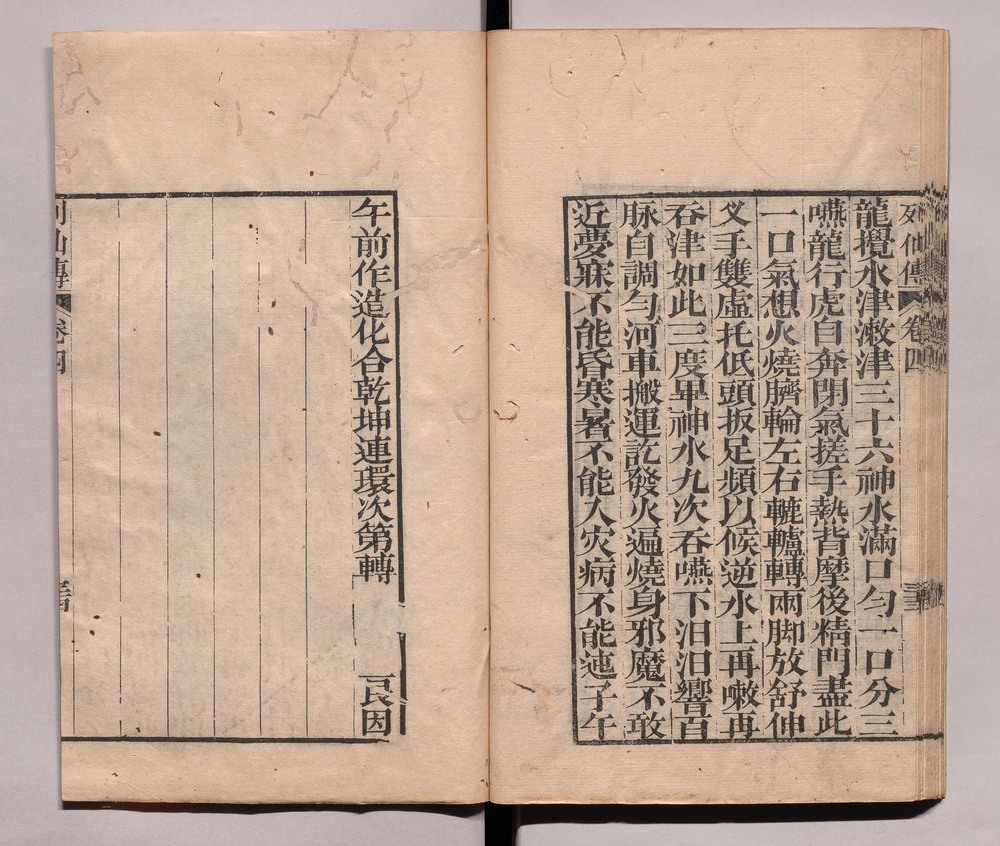 列仙傳 卷四
龍攪水津漱津三十六神水滿口勻一口分三
嚥龍行虎自奔閉氣搓手熱背摩後精門盡此
一口氣想火燒臍輪左右轆轤轉兩脚放舒伸
叉手雙虛托低頭扳足頻以候逆水上再嗽再
吞津如此三度畢神水九次吞嚥下汨汨響百
脉自調勻河車搬運訖發火遍燒身邪魔不敢
近夢寐不能昏寒暑不能入灾病不能迍子午
午前作造化合乾坤連環次第轉 艮因
列仙傳 卷四